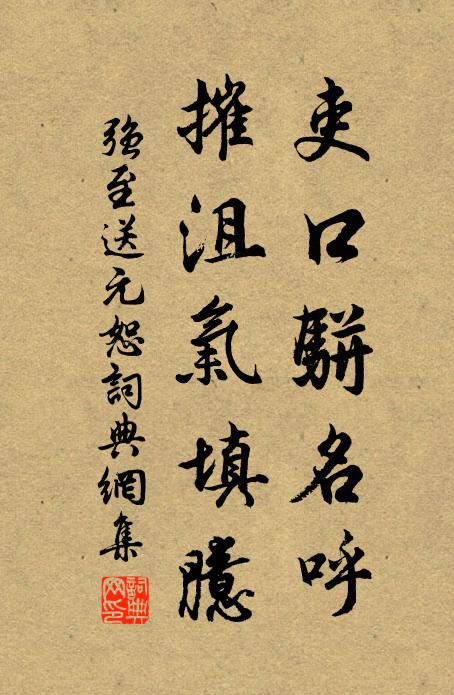 吏口駢名呼
摧沮氣填臆
強至送元恕詞典網集
詞典网印